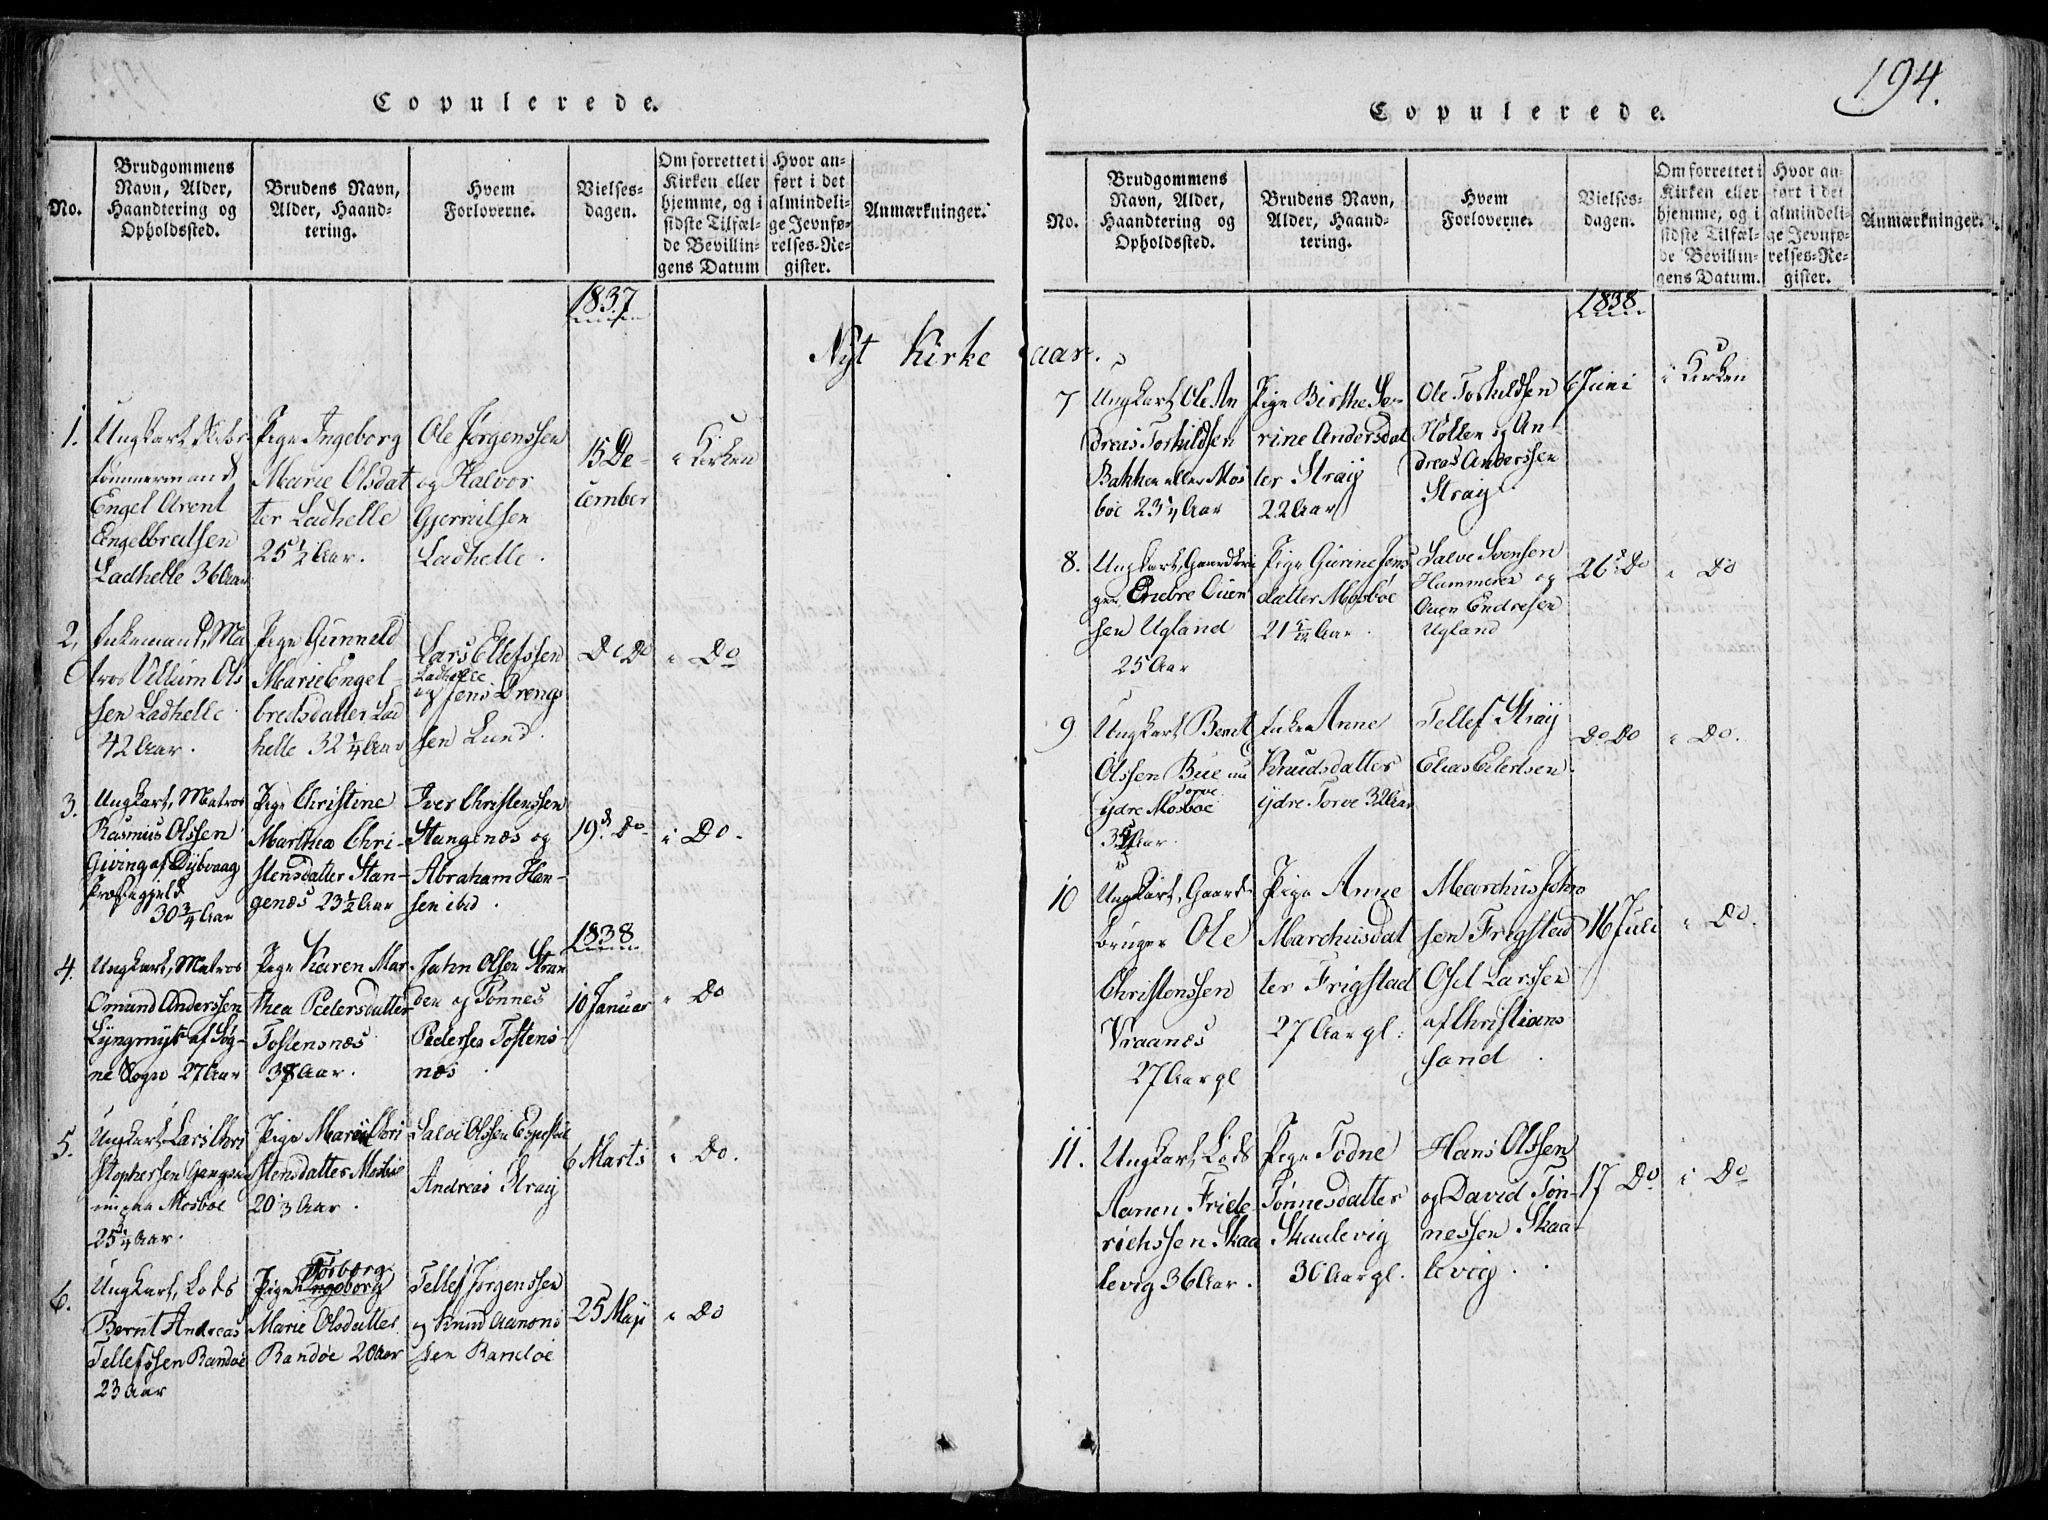 Copulerede.
No.
Brudgommens
Navn, Alder,
Haandtering og
Opholdssted.
Brudens Navn,
Alder, Haand-
tering.
Hvem
Forloverne.
Vielses-
dagen.
Om forrettet i
Kirken eller
hjemme, og i
sidste Tilfæl-
de Bevillin-
gens Datum
Hvor an-
ført i det
almindeli-
ge Jevnfø-
relses-Re-
gister.
Anmærkninger.
1837
Nyt Kirke
1.
Ungkarl
tømmermand
Engel Arent
Engelbretsen
Ladhelle 36 Aar
Pige Ingeborg
Marie Olsdat
ter Ladhelle
25 1/2 Aar.
Ole Jørgenssen
og Halvor
Gjerruilsen
Ladhelle.
15 De-
cember
i Kirken
2.
Enkemand, Ma
tros Villum Ols
sen Ladhelle
42 Aar.
Pige Gunneld
Marie Engel-
bredsdatter Lad
helle 32 1/4 Aar
Lars Ellefssen
Ladhelle
og Jens Drengs
sen Lund.
Do Do
i Do
3.
Ungkarl, Matros
Rasmus Olssen
Giving af Dybvaag
Præstegjeld
30 3/4 Aar
Pige Christine
Marthea Chri-
stensdatter Stan-
genæs 23 1/2 Aar
Iver Christenssen
Stangenæs og
Abraham Han-
sen ibid.
19d Do
i Do.
1838
4.
Ungkarl, Matros
Omund Anderssen
Lyngmyr af Søg-
ne Sogn 27 Aar
Pige Karen Mar
thea Pedersdatter
Tostensnæs
37 Aar.
Jahn Olsen Stran
den og Tønnes
Pedersen Tostens-
næs.
10 Januar
i Do
5.
Ungkarl Lars Chri
stophersen
paa Mosbøe
25 1/4 Aar.
Pige Maren Chri
stensdatter Mosbøe
20 1/3 Aar.
Salve Olssen Espestøl
Andreas Straij
6 Marts
i Do.
6.
Ungkarl, Lods
Bernt Andreas
Tellefssen Randøe
23 Aar
Torborg
Pige Ingeborg
Marie Olsdatter
Randøe 20 Aar
Tellef Jørgenssen
og Knud Aanons
sen Randøe
25 Maji
i Do
194.
Copulerede.
No.
Brudgommens
Navn, Alder,
Haandtering og
Opholdssted.
Brudens Navn,
Alder, Haand-
tering.
Hvem
Forloverne.
Vielses-
dagen.
Om forrettet i
Kirken eller
hjemme, og i
sidste Tilfæl-
de Bevillin-
gens Datum.
Hvor an-
ført i det
almindeli-
ge Jevnfø-
relses-Re-
gister.
Anmærkninger.
1838
aar.
7
Ungkarl Ole An
dreas Torkildsen
Bakken eller Mos
bøe 23 1/4 Aar
Pige Birthe Se-
rine Andersdat
ter Straij
22 Aar
Ole Torkildsen
Hølten og An-
dreas Anderssen
Straij.
6 Juni
i Kirken
8.
Ungkarl, Gaardbru
ger Endre Ouen
sen Ugland
25 Aar
Pige Gurine Jens
datter Mosbøe
21 5/12 Aar.
Salve Svensen
Hammeren og
Ouen Endresen
Ugland
26d Do
i Do
9
Ungkarl Berent
Olssen Bue nu
ydre Mosbøe
Torve
Aar.
Enken Anne
Knudsdatter
ydre Torve 32 Aar
Tellef Straij
Elias Eilertsen.
Do Do
i Do.
10
Ungkarl, Gaard-
bruger Ole
Christenssen
Vraanæs
27 Aar gl
Pige Anne
Marchusdat
ter Frigstad
27 Aar gl:
Marchus John
sen Frigstad
Osel Larssen
af Christians
sand.
16 Juli
i Do.
11.
Ungkarl Lods
Aanon Fride
richssen Skaa
levig 36 Aar.
Pige Todne
Tønnesdatter
Skaalevig
30 Aar gl.
Hans Olssen
og David Tøn-
nessen Skaa-
levig.
17 Do
i Do